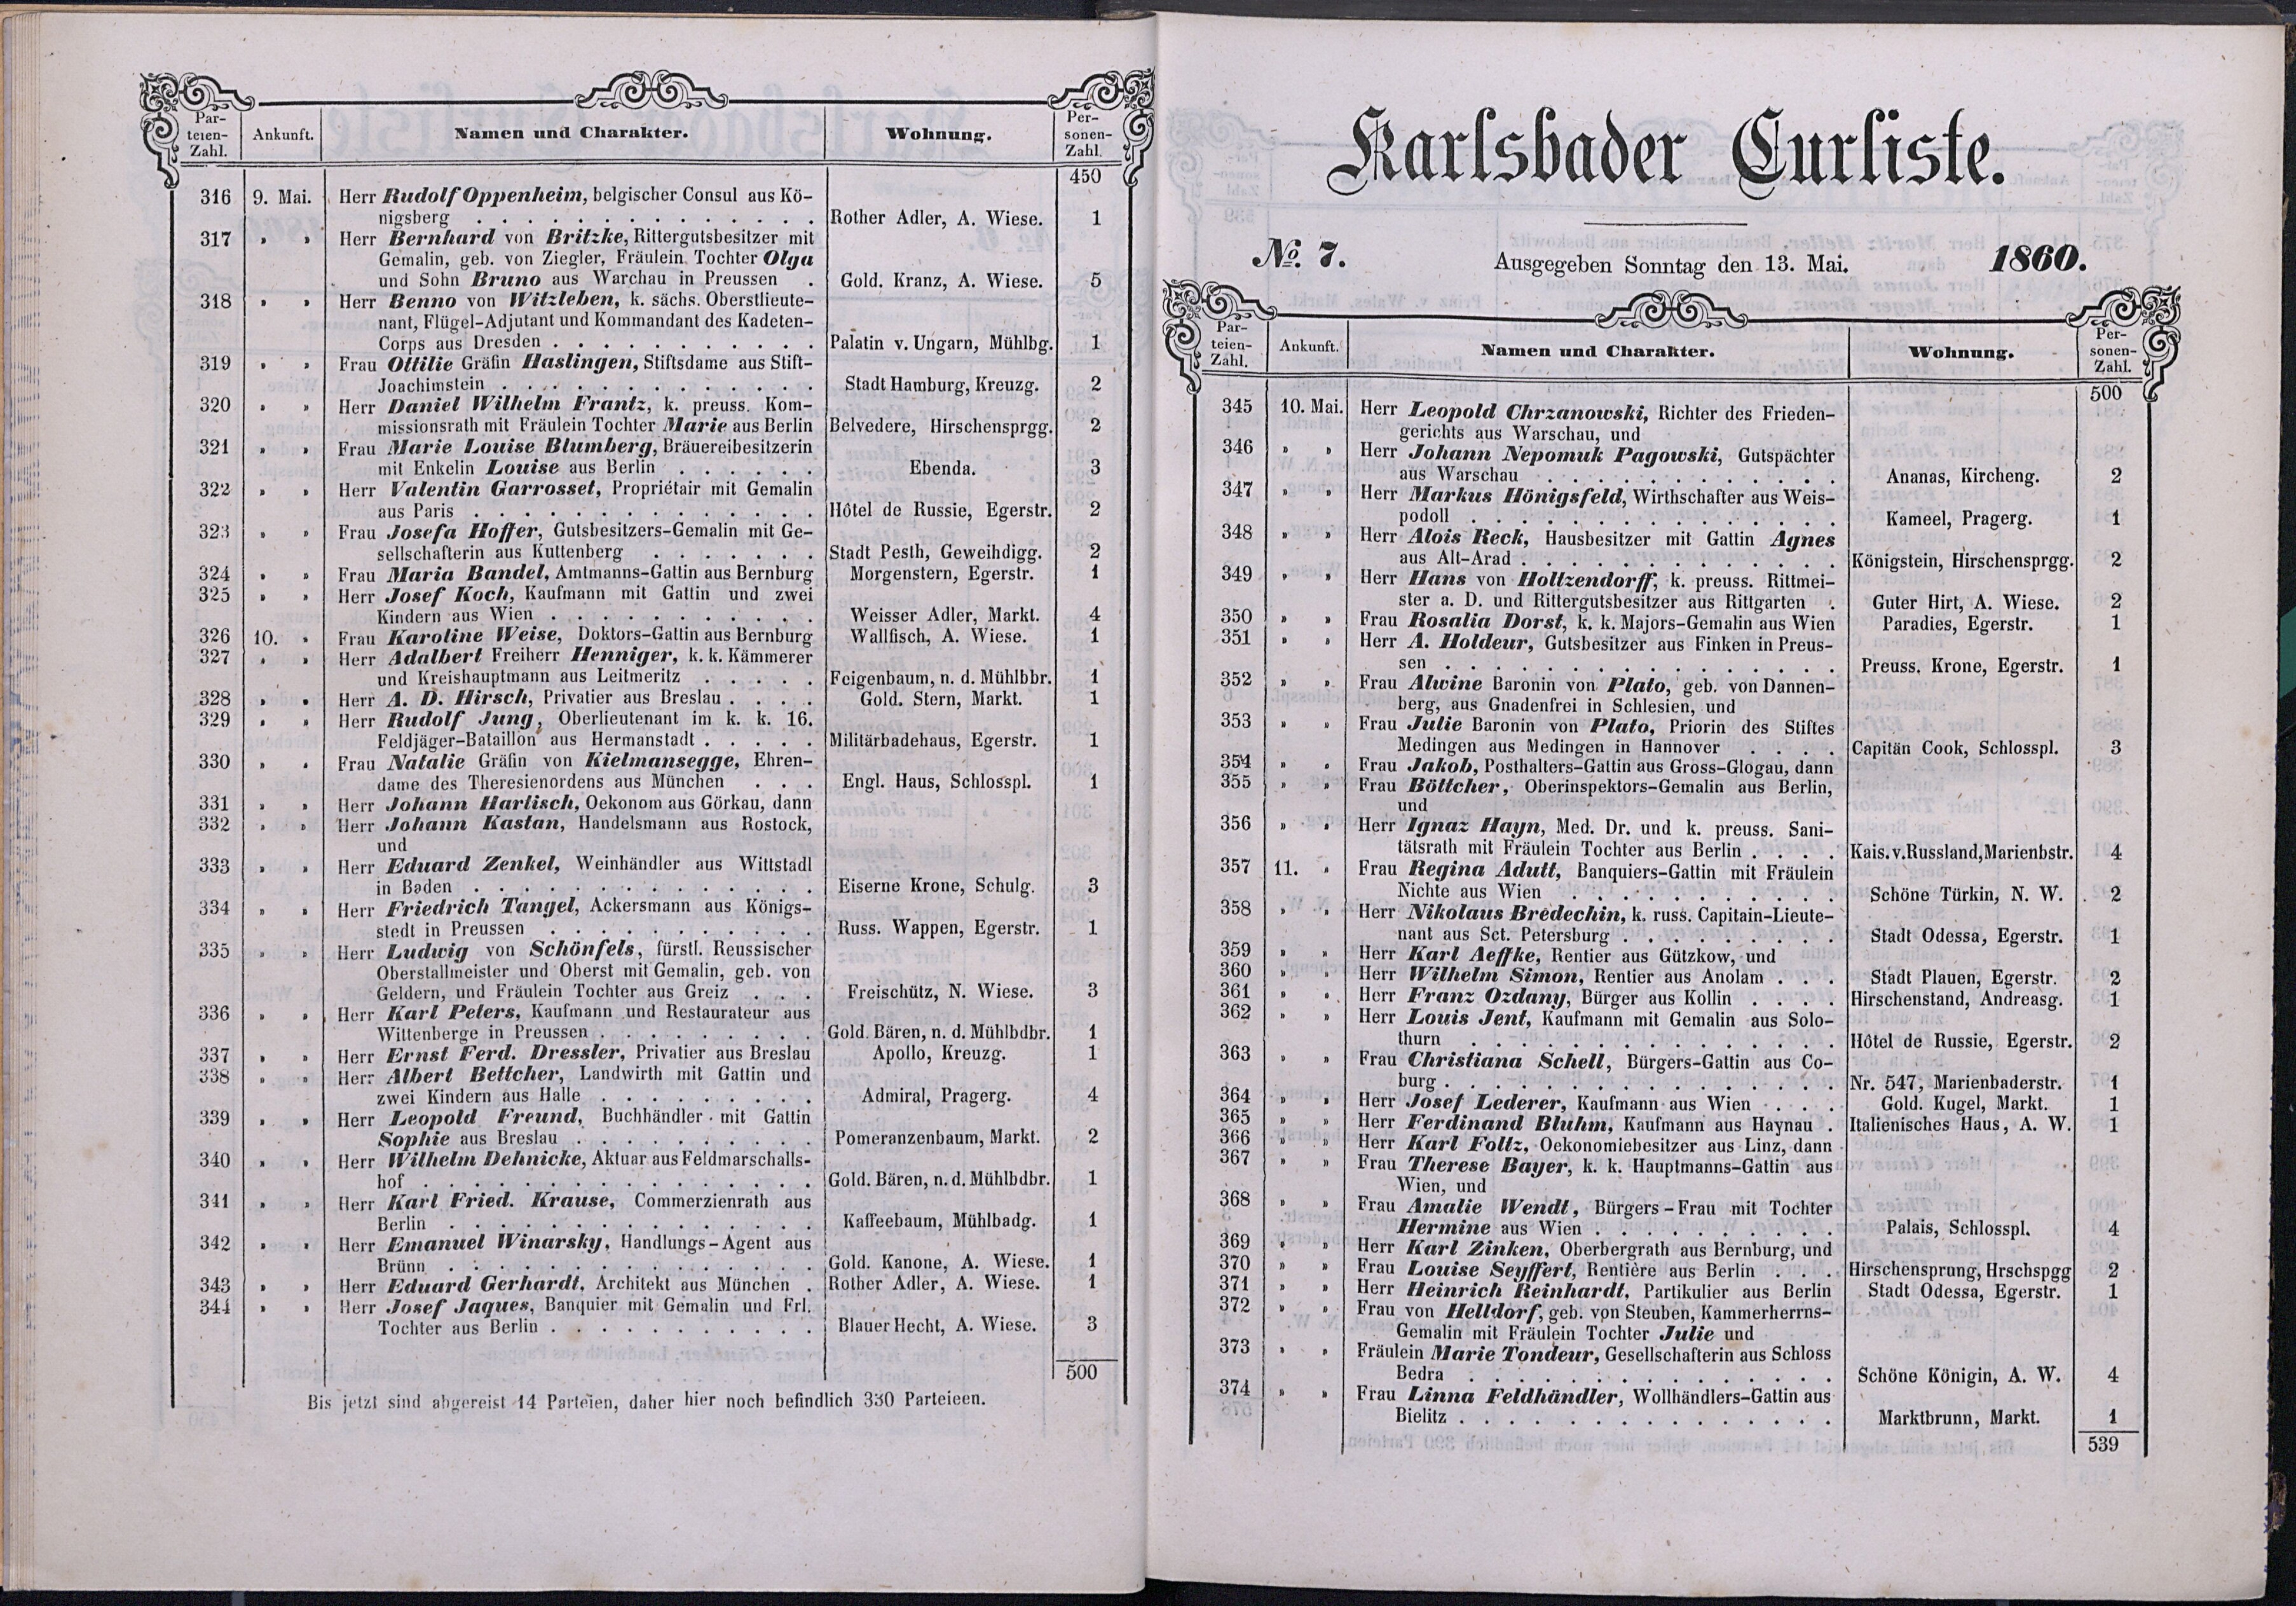 Par-
teien-
Zahl.
Ankunft.
Namen und Charakter.
Wohnung.
Per-
sonen-
Zahl.
450
316 9. Mai. Herr Rudolf Oppenheim, belgischer Consul aus Kö-
nigsberg . . . Rother Adler, A. Wiese. 1
317 » » Herr Bernhard von Britzke, Rittergutsbesitzer mit
Gemalin, geb. von Ziegler, Fräulein Tochter Olga
und Sohn Bruno aus Warchau in Preussen . Gold. Kranz, A. Wiese. 5
318 » » Herr Benno von Witzleben, k. sächs. Oberstlieute-
nant, Flügel-Adjutant und Kommandant des Kadeten-
Corps aus Dresden . . . Palatin v. Ungarn, Mühlbg. 1
319 » » Frau Ottilie Gräfin Haslingen, Stiftsdame aus Stift-
Joachimstein . . . Stadt Hamburg, Kreuzg. 2
320 » » Herr Daniel Wilhelm Frantz, k. preuss. Kom-
missionsrath mit Fräulein Tochter Marie aus Berlin Belvedere, Hirschensprgg. 2
321 » » Frau Marie Louise Blumberg, Bräuereibesitzerin
mit Enkelin Louise aus Berlin . . . Ebenda. 3
322 » » Herr Valentin Garrosset, Propriétair mit Gemalin
aus Paris . . . Hôtel de Russie, Egerstr. 2
323 » » Frau Josefa Hoffer, Gutsbesitzers-Gemalin mit Ge-
sellschafterin aus Kuttenberg . . . Stadt Pesth, Geweihdigg. 2
324 » » Frau Maria Bandel, Amtmanns-Gattin aus Bernburg Morgenstern, Egerstr. 1
325 » » Herr Josef Koch, Kaufmann mit Gattin und zwei
Kindern aus Wien . . . Weisser Adler, Markt. 4
326 10. » Frau Karoline Weise, Doktors-Gattin aus Bernburg Wallfisch, A. Wiese. 1
327 » » Herr Adalbert Freiherr Henniger, k. k. Kämmerer
und Kreishauptmann aus Leitmeritz . . . Feigenbaum, n. d. Mühlbbr. 1
328 » » Herr A. D. Hirsch, Privatier aus Breslau . . . Gold. Stern, Markt. 1
329 » » Herr Rudolf Jung, Oberlieutenant im k. k. 16.
Feldjäger-Bataillon aus Hermanstadt . . . Militärbadehaus, Egerstr. 1
330 » » Frau Natalie Gräfin von Kielmansegge, Ehren-
dame des Theresienordens aus München . . . Engl. Haus, Schlosspl. 1
331 » » Herr Johann Hartisch, Oekonom aus Görkau, dann
332 » » Herr Johann Kastan, Handelsmann aus Rostock,
und
333 » » Herr Eduard Zenkel, Weinhändler aus Wittstadl
in Baden . . . Eiserne Krone, Schulg. 3
334 » » Herr Friedrich Tangel, Ackersmann aus Königs-
stedt in Preussen . . . Russ. Wappen, Egerstr. 1
335 » » Herr Ludwig von Schönfels, fürstl. Reussischer
Oberstallmeister und Oberst mit Gemalin, geb. von
Geldern, und Fräulein Tochter aus Greiz . . . Freischütz, N. Wiese. 3
336 » » Herr Karl Peters, Kaufmann und Restaurateur aus
Wittenberge in Preussen . . . Gold. Bären, n. d. Mühlbdbr. 1
337 » » Herr Ernst Ferd. Dressler, Privatier aus Breslau Apollo, Kreuzg. 1
338 » » Herr Albert Bettcher, Landwirth mit Gattin und
zwei Kindern aus Halle . . . Admiral, Pragerg. 4
339 » » Herr Leopold Freund, Buchhändler mit Gattin
Sophie aus Breslau . . . Pomeranzenbaum, Markt. 2
340 » » Herr Wilhelm Dehnicke, Aktuar aus Feldmarschalls-
hof . . . Gold. Bären, n. d. Mühlbdbr. 1
341 » » Herr Karl Fried. Krause, Commerzienrath aus
Berlin . . . Kaffeebaum, Mühlbadg. 1
342 » » Herr Emanuel Winarsky, Handlungs-Agent aus
Brünn . . . Gold. Kanone, A. Wiese. 1
343 » » Herr Eduard Gerhardt, Architekt aus München . Rother Adler, A. Wiese. 1
344 » » Herr Josef Jaques, Banquier mit Gemalin und Frl.
Tochter aus Berlin . . . Blauer Hecht, A. Wiese. 3
500
Bis jetzt sind abgereist 14 Parteien, daher hier noch befindlich 330 Parteieen.
Karlsbader Curliste.
No. 7. Ausgegeben Sonntag den 13. Mai. 1860.
Par-
teien-
Zahl.
Ankunft.
Namen und Charakter.
Wohnung.
Per-
sonen-
Zahl.
500
345 10. Mai. Herr Leopold Chrzanowski, Richter des Frieden-
gerichts aus Warschau, und
346 » » Herr Johann Nepomuk Pagowski, Gutspächter
aus Warschau . . . Ananas, Kircheng. 2
347 » » Herr Markus Hönigsfeld, Wirthschafter aus Weis-
podoll . . . Kameel, Pragerg. 1
348 » » Herr Alois Reck, Hausbesitzer mit Gattin Agnes
aus Alt-Arad . . . Königstein, Hirschensprgg. 2
349 » » Herr Hans von Holtzendorff, k. preuss. Rittmei-
ster a. D. und Rittergutsbesitzer aus Rittgarten . Guter Hirt, A. Wiese. 2
350 » » Frau Rosalia Dorst, k. k. Majors-Gemalin aus Wien Paradies, Egerstr. 1
351 » » Herr A. Holdeur, Gutsbesitzer aus Finken in Preus-
sen . . . Preuss. Krone, Egerstr. 1
352 » » Frau Alwine Baronin von Plato, geb. von Dannen-
berg, aus Gnadenfrei in Schlesien, und
353 » » Frau Julie Baronin von Plato, Priorin des Stiftes
Medingen aus Medingen in Hannover . . . Capitän Cook, Schlosspl. 3
354 » » Frau Jakob, Posthalters-Gattin aus Gross-Glogau, dann
355 » » Frau Böttcher, Oberinspektors-Gemalin aus Berlin,
und
356 » » Herr Ignaz Hayn, Med. Dr. und k. preuss. Sani-
tätsrath mit Fräulein Tochter aus Berlin . . . Kais. v. Russland, Marienbstr. 4
357 11. » Frau Regina Adutt, Banquiers-Gattin mit Fräulein
Nichte aus Wien . . . Schöne Türkin, N. W. 2
358 » » Herr Nikolaus Bredechin, k. russ. Capitain-Lieute-
nant aus Sct. Petersburg . . . Stadt Odessa, Egerstr. 1
359 » » Herr Karl Aeffke, Rentier aus Gützkow, und
360 » » Herr Wilhelm Simon, Rentier aus Anolam . . . Stadt Plauen, Egerstr. 2
361 » » Herr Franz Ozdany, Bürger aus Kollin . . . Hirschenstand, Andreasg. 1
362 » » Herr Louis Jent, Kaufmann mit Gemalin aus Solo-
thurn . . . Hôtel de Russie, Egerstr. 2
363 » » Frau Christiana Schell, Bürgers-Gattin aus Co-
burg . . . Nr. 547, Marienbaderstr. 1
364 » » Herr Josef Lederer, Kaufmann aus Wien . . . Gold. Kugel, Markt. 1
365 » » Herr Ferdinand Bluhm, Kaufmann aus Haynau . Italienisches Haus, A. W. 1
366 » » Herr Karl Foltz, Oekonomiebesitzer aus Linz, dann
367 » » Frau Therese Bayer, k. k. Hauptmanns-Gattin aus
Wien, und
368 » » Frau Amalie Wendt, Bürgers-Frau mit Tochter
Hermine aus Wien . . . Palais, Schlosspl. 4
369 » » Herr Karl Zinken, Oberbergrath aus Bernburg, und
370 » » Frau Louise Seyffert, Rentière aus Berlin . . . Hirschensprung, Hrschspgg 2
371 » » Herr Heinrich Reinhardt, Partikulier aus Berlin Stadt Odessa, Egerstr. 1
372 » » Frau von Helldorf, geb. von Steuben, Kammerherrns-
Gemalin mit Fräulein Tochter Julie und
373 » » Fräulein Marie Tondeur, Gesellschafterin aus Schloss
Bedra . . . Schöne Königin, A. W. 4
374 » » Frau Linna Feldhändler, Wollhändlers-Gattin aus
Bielitz . . . Marktbrunn, Markt. 1
539